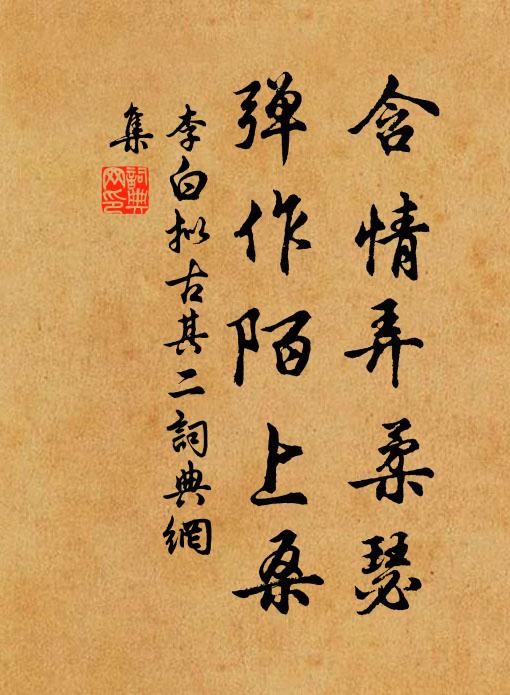 含情弄柔瑟
弹作陌上桑
李白拟古其二詞典網
集
詞典网印